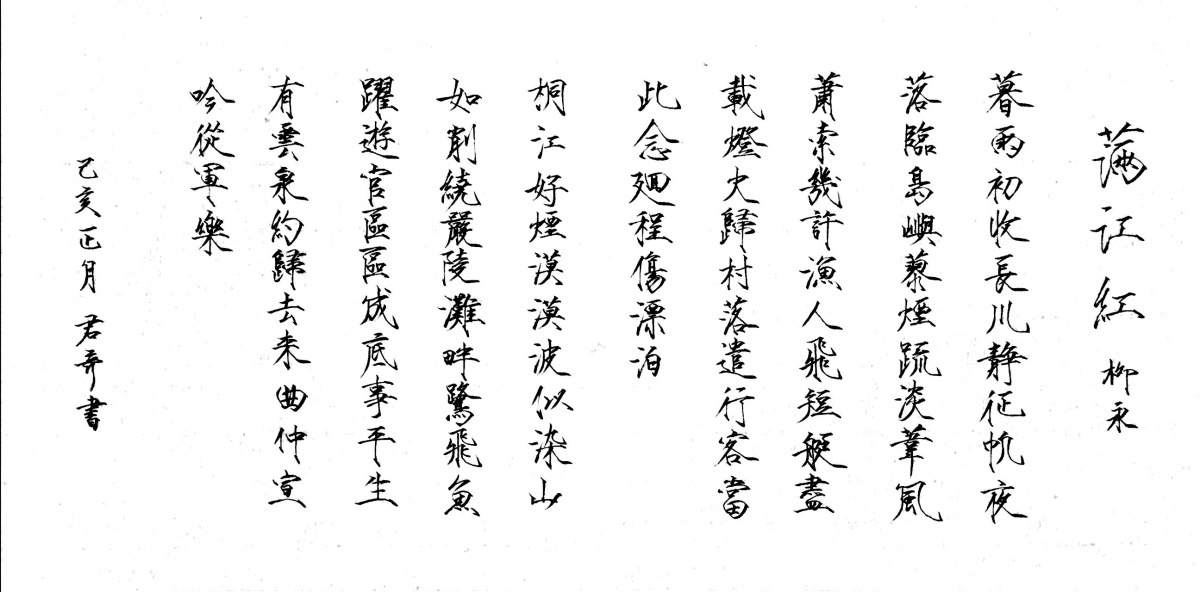 滿江紅 柳永
暮雨初收長川靜征帆夜
落臨島嶼藜煙疏淡葦風
蕭索幾許漁人飛短艇盡
載燈火歸村落遣行客當
此念廻程傷漂泊
桐江好煙漠漠波似染山
如削繞嚴陵灘畔鷺飛魚
躍遊官區區成底事平生
有雲泉約歸去來曲仲宣
吟從軍樂
己亥正月 君 書